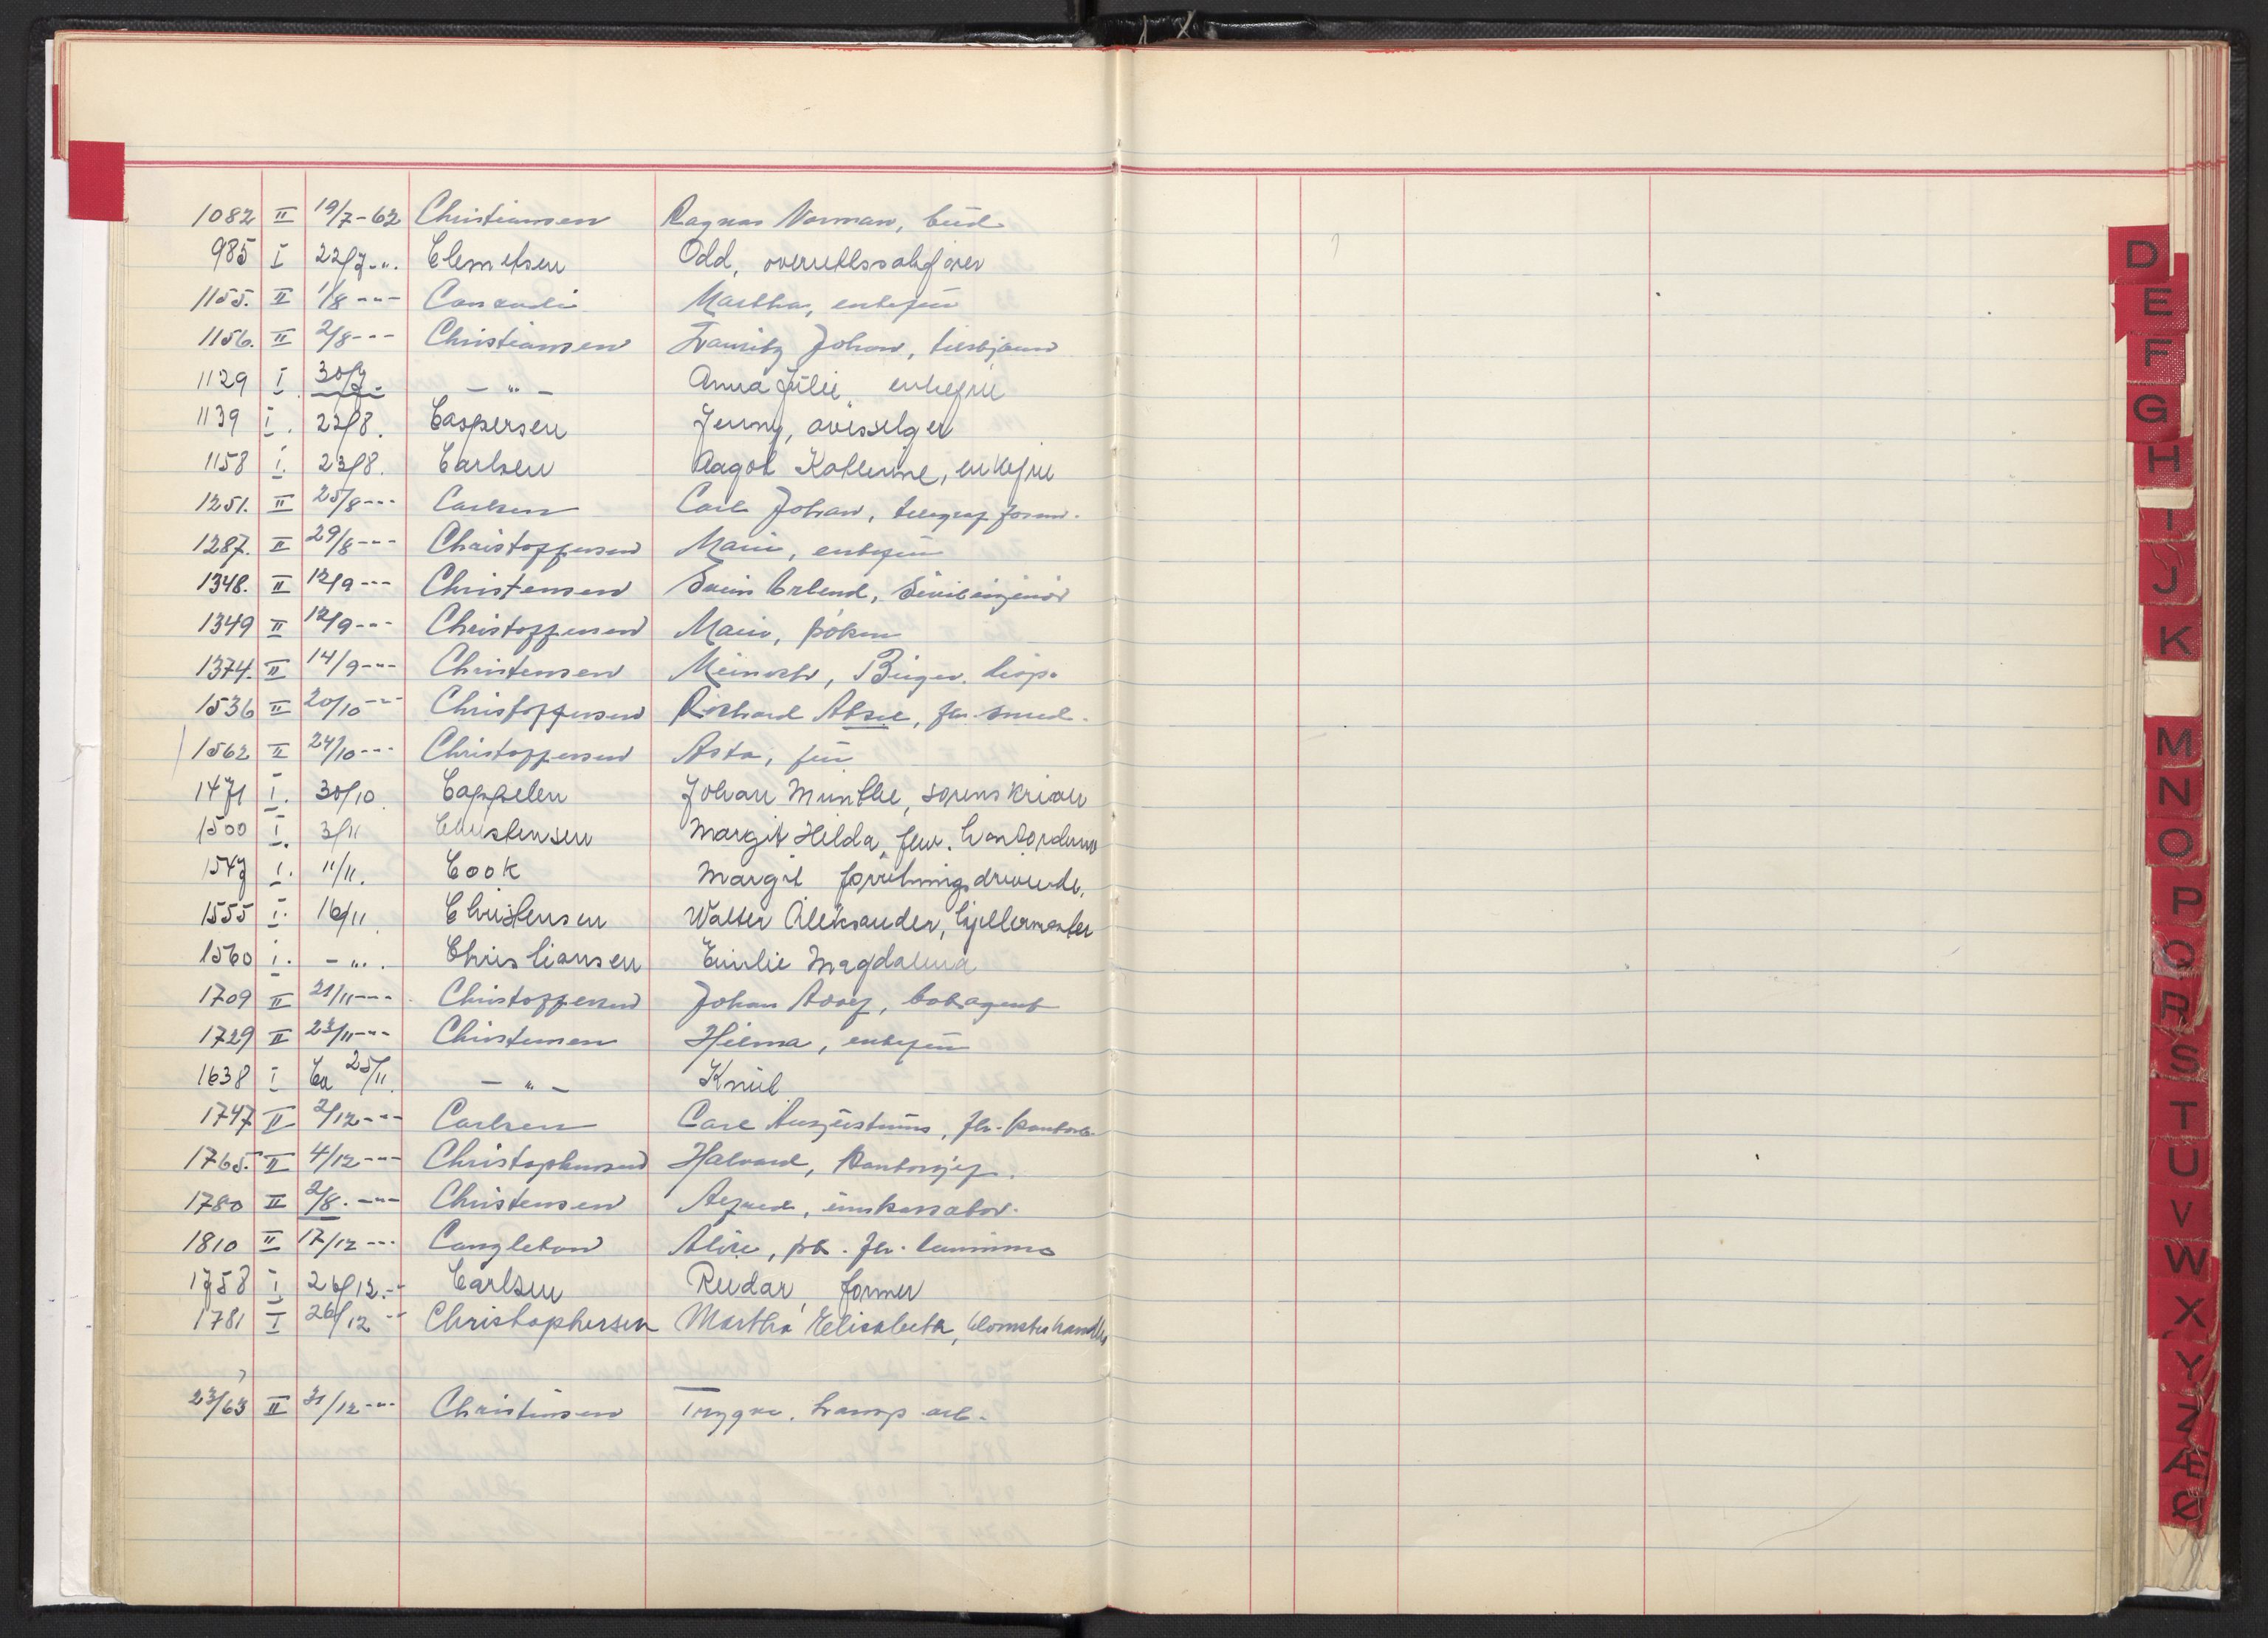 1082 II 19/7-62 Christiansen Ragnar Norman, bud
985 I 22/7-"- Clemetsen Odd, overrettssakfører
1155. II 1/8 -"- Martha, enkefru
1156. II 2/8 -"- Christiansen Lauritz Johan,
1129 I. 30/7. -"- Anna Julie, enkefru
1139 I. 22/8. Caspersen Jenny, avisselger
1158 I. 23/8. Carlsen Aagot Katerine, enkefru
1251. II 25/8 -"- Carlsen Carl Johan, telegraf form.
1287. II 29/8 -"- Christoffersen Marie, enkefru
1348. II 12/9 -"- Christensen Svein Erlend, Sivilingeniør
1349 II 12/9 -"- Christoffersen Marie, frøken
1374. II 14/9 -"- Christensen Meinert, Birger. disp.
1536 II 20/10 -"- Christoffersen Richard, fhv. smed.
1562 II 24/10 -"- Christoffersen Asta, fru
1471 I. 30/10. Cappelen Johan Munthe, sorenskriver
1500 I. 3/11 Christensen Margit Hilda, fhv.
1547 I. 11/11. Cook Margit forretningsdrivende.
1555 I. 16/11. Christensen Walter Aleksander, kjellermester
1560 I. -"- Christiansen Emilie Magdalena
1709 II 21/11 -"- Christoffersen Johan Adolf,
1729 II 23/11 -"- Christensen Hilma, enkefru
1638 I Ca 25/11. -"- Knut
1747 II 2/12 -"- Carlsen Carl Augustinus, fhv.
1765. II 4/12 -"- Christophersen Halvard, kontorsjef.
1780 II 2/8. -"- Christensen Alfred, innkassator.
1810 II 17/12 -"- Congleton Alice, frk. fhv.
1758 I 26/12 -"- Carlsen Reidar, former
1781 I 26/12 -"- Christophersen Martha Elisabeth, blomsterhandler
23/63 II 31/12 -"- Christensen Trygve.
D
E
F
G
H
I
J
K
M
N
O
P
Q
R
S
T
U
V
W
X
Y
Z
Æ
Ø